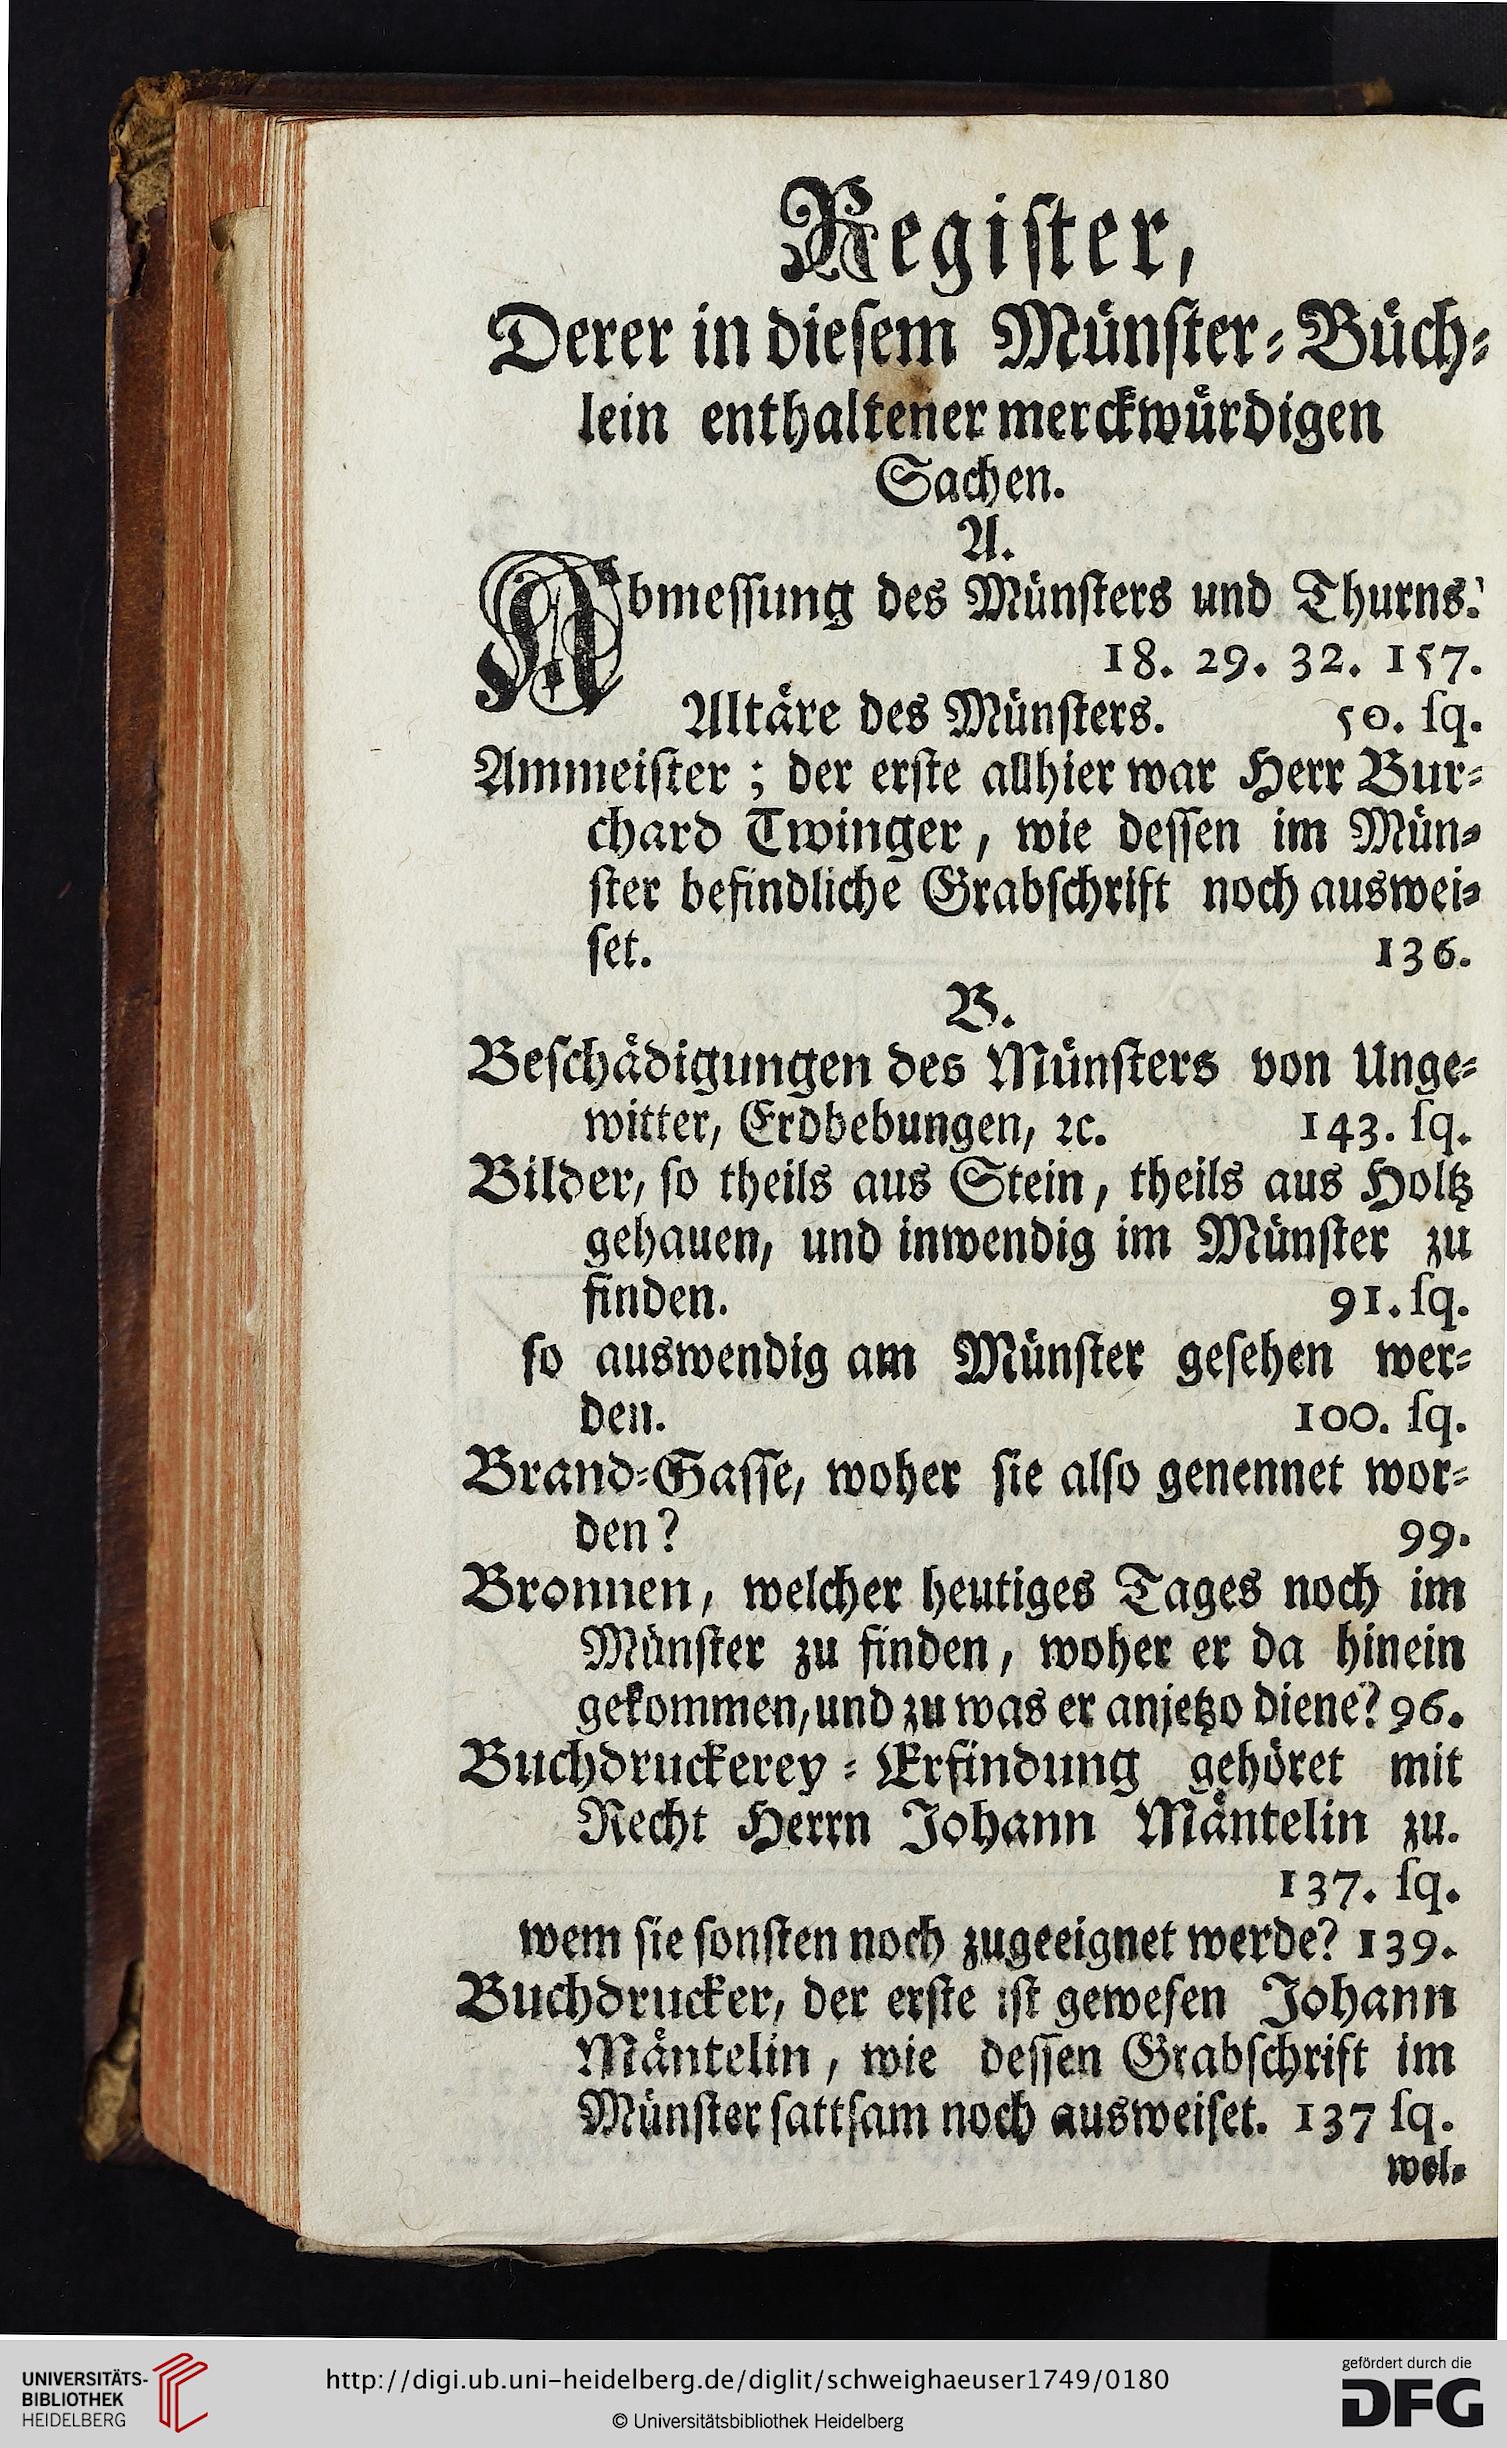 Register,
Derer in dieſem Münſter⸗Büch⸗
lein enthaltener merckwürdigen
Sachen.
A.
Abmeſſung des Münſters und Thurns.
18. 29. 32. 157.
Altäre des Münſters. 50. ſq.
Ammeiſter; der erſte allhier war Herr Bur⸗
chard Twinger, wie deſſen im Mün⸗
ſter befindliche Grabſchrift noch auswei⸗
ſet. 136.
B.
Beſchädigungen des Münſters von Unge⸗
witter, Erdbebungen, ꝛc. 143. ſq.
Bilder, ſo theils aus Stein, theils aus Holtz
gehauen, und inwendig im Münſter zu
finden. 91. ſq.
ſo auswendig am Münſter geſehen wer⸗
den. 100. ſq.
Brand⸗Gaſſe, woher ſie alſo genennet wor⸗
den? 99.
Bronnen, welcher heutiges Tages noch im
Münſter zu finden, woher er da hinein
gekommen, und zu was er anjetzo diene? 96.
Buchdruckerey⸗Erfindung gehöret mit
Recht Herrn Johann Mäntelin zu.
137. ſq.
wem ſie ſonſten noch zugeeignet werde? 139.
Buchdrucker, der erſte iſt geweſen Johann
Mäntelin, wie deſſen Grabſchrift im
Münſter ſattſam noch ausweiſet. 137 ſq.
wel⸗
UNIVERSITÄTS-
BIBLIOTHEK
HEIDELBERG
http://digi.ub.uni-heidelberg.de/diglit/schweighaeuser1749/0180
© Universitätsbibliothek Heidelberg
gefördert durch die
DFG